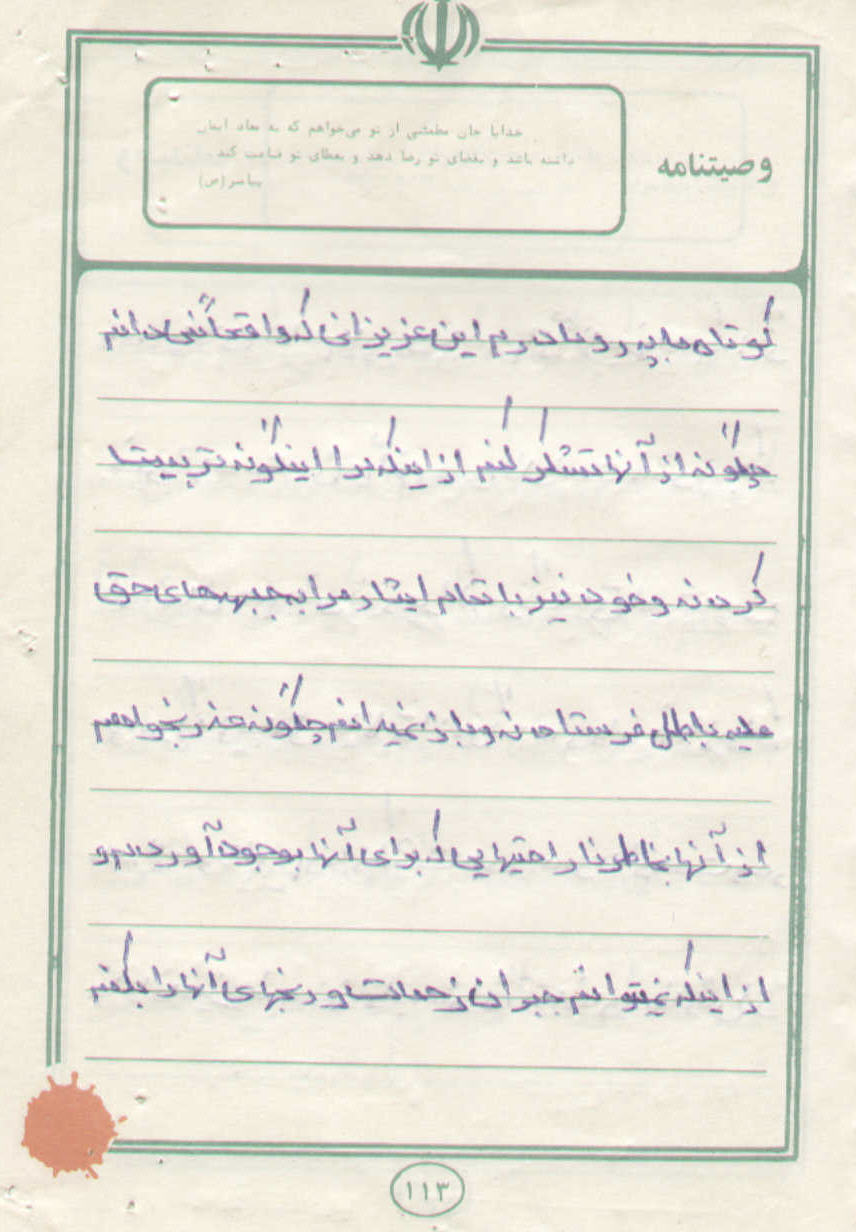 خدایا جان مطمئنی از تو می‌خواهم که به معاد ایمان
داشته باشد و بقضای تو رضا دهد و بعطای تو قناعت کند
پیامبر (ص)
وصیتنامه
کوتاه با پدر و مادرم این عزیزانی که واقعاً نمی‌دانم
چگونه از آنها تشکر کنم از اینکه مرا اینگونه تربیت
کردند و خود نیز با تمام ایثار مرا به جبهه‌های حق
علیه باطل فرستادند و باز نمیدانم چگونه عذر بخواهم
از آنها بخاطر ناراحتیهایی که برای آنها بوجود آوردم و
از اینکه نمیتوانم جبران زحمات و رنجهای آنها را بکنم
۱۱۳